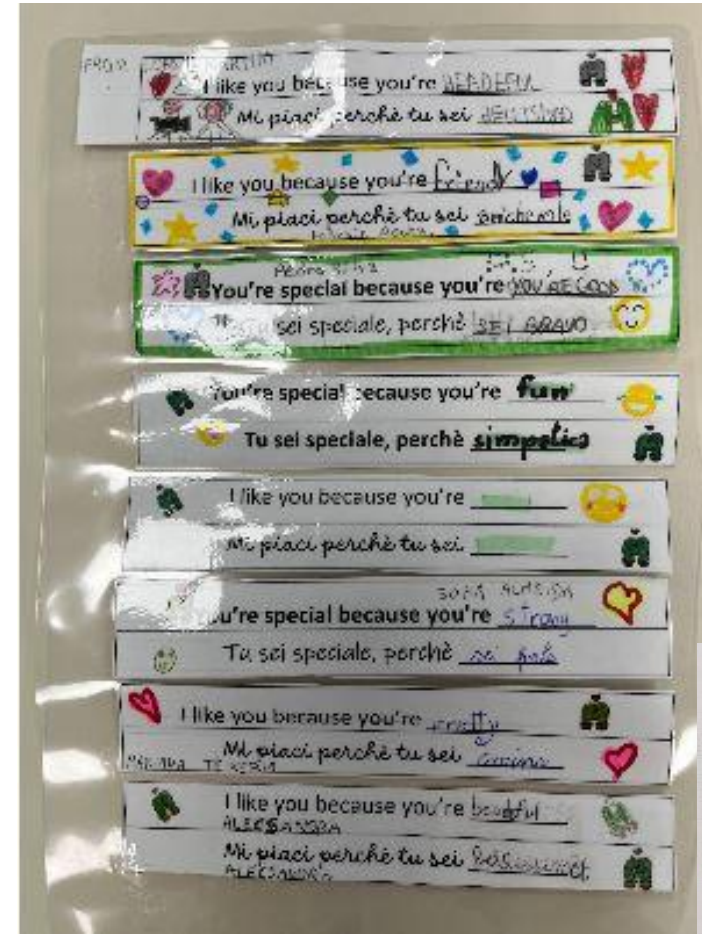 FROM
I like you because you're
Mi piaci perchè tu sei
I like you because you're friendly
Mi piaci perchè tu sei
You're special because you're YOU ARE GOOD
Tu sei speciale, perchè SEI BRAVO
You're special because you're fun
Tu sei speciale, perchè simpatico
I like you because you're
Mi piaci perchè tu sei
SOFIA ALMEIDA
You're special because you're strong
Tu sei speciale, perchè sei
I like you because you're pretty
Mi piaci perchè tu sei carina
I like you because you're
ALESSANDRA
Mi piaci perchè tu sei
ALESSANDRA